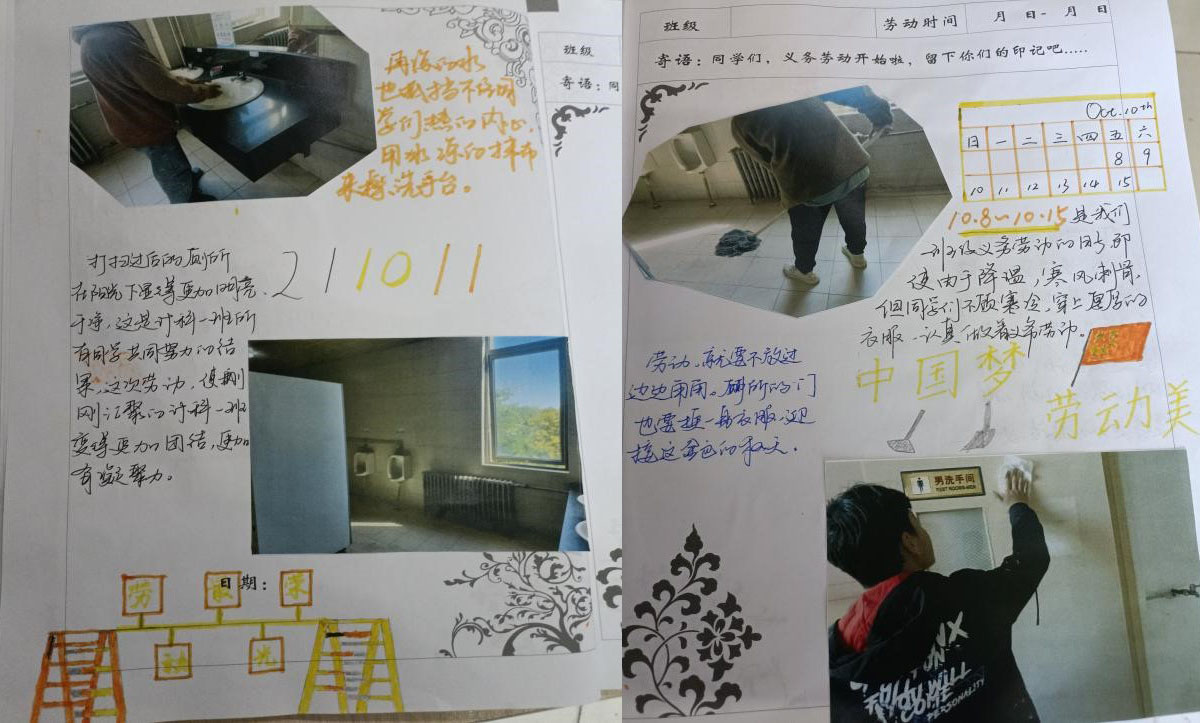 再凉的水
也抵挡不住同
学们热的内心.
用水凉的抹布
来擦洗手台。
班级
寄语:同
打扫过后的厕所
在阳光下显得更加明亮、
干净,这是计科一班所
有同学共同努力的结
果,这次劳动,使刚
刚汇聚的计科一班
变得更加团结,更加
有凝聚力。
211011
日期:
劳 最 荣
动 光
班级 劳动时间 月 日- 月 日
寄语:同学们,义务劳动开始啦,留下你们的印记吧.....
Oct.10th
日 一 二 三 四 五 六
8 9
10 11 12 13 14 15
10.8~10.15是我们
班级义务劳动的日子,即
使由于降温,寒风刺骨,
但同学们不顾寒冷,穿上厚厚的
衣服,认真做着义务劳动。
中国梦
劳动美
劳动,就要不放过
边边角角。厕所的门
也要换一身衣服,迎
接这金色的秋天.
男洗手间
TOILET ROOMS-MEN
YOU WILL
PERSONALITY